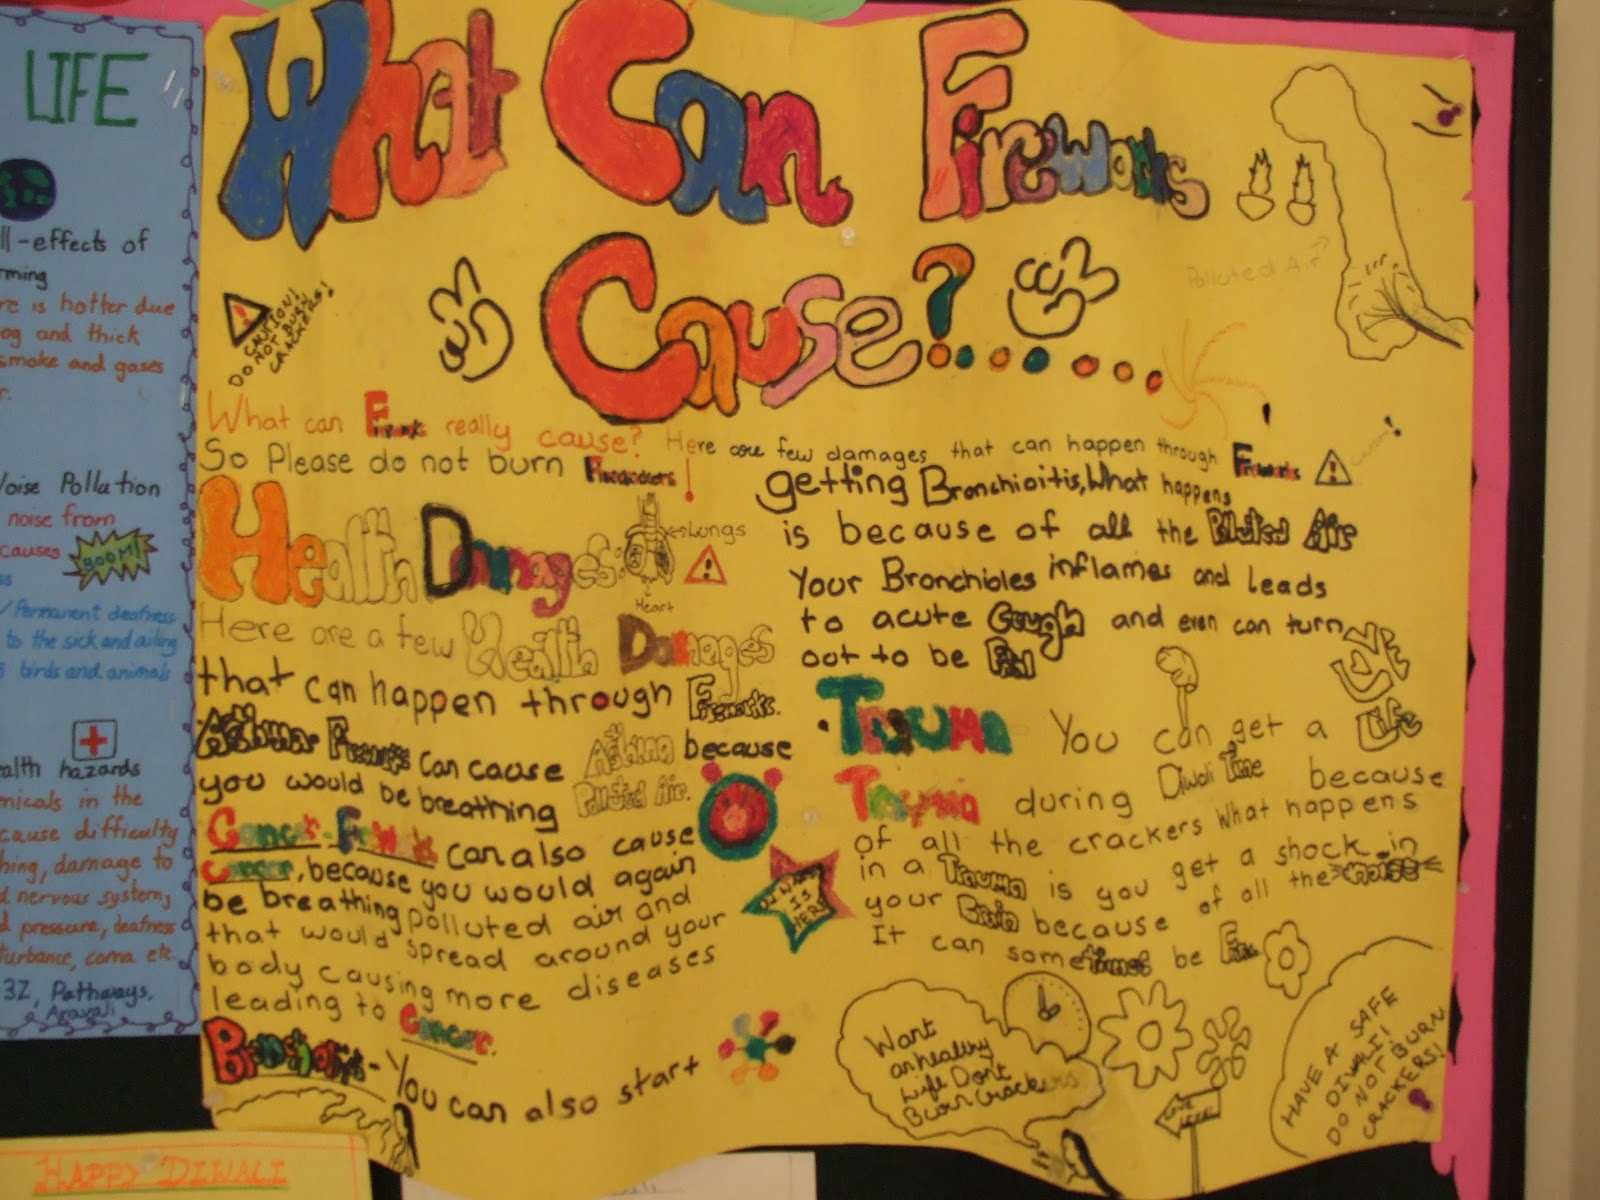 LIFE
ll-effects of
rming
re is hotter due
og and thick
smoke and gases
r.
Noise Pollution
noise from
causes BOOM!
ss
/Permanent deafness
to the sick and ailing
birds and animals
alth hazards
micals in the
cause difficulty
hing, damage to
d nervous system,
d pressure, deafness
turbance, coma etc.
3Z, Pathways,
Aravali
What Can Fireworks
Cause?
CAUTION!
DO NOT BURN
CRACKERS!
Polluted Air
What can really cause? Here are few damages that can happen through Fireworks
So Please do not burn Firecrackers!
Health Damages:
Lungs
Heart
Here are a few Health Damages
that can happen through Fireworks.
Asthma- Fireworks can cause Asthma because
you would be breathing Polluted Air.
Cancer- can also cause
Cancer, because you would again
be breathing polluted air and
that would spread around your
body causing more diseases
leading to Cancer.
You can also start
getting Bronchioitis, What happens
is because of all the Polluted Air
Your Bronchioles inflames and leads
to acute Cough and even can turn
out to be
• Trauma You can get a
LOVE
Life
Trauma during Diwali Time because
of all the crackers What happens
in a Trauma is you get a shock in
your Brain because of all the noise
It can sometimes be
DIWALI
IS
HERE
Want
an healthy
Life Dont
Burn Crackers
HAVE A SAFE
DIWALI!
DO NOT BURN
CRACKERS!
HAPPY DIWALI